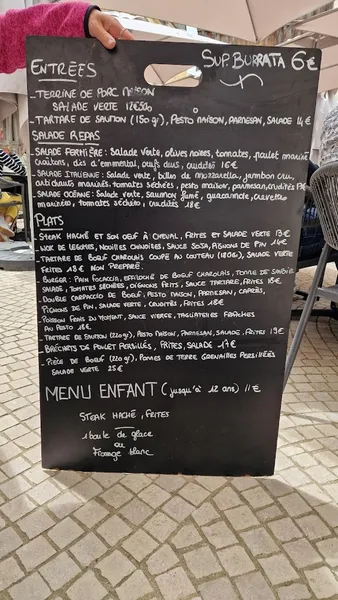 SUP. BURRATA 6€
ENTRÉES
_ TERRINE DE PORC MAISON
SALADE VERTE 12€50
_ TARTARE DE SAUMON (150 gr), PESTO MAISON, PARMESAN, SALADE 14€
SALADE REPAS
_ SALADE FERMIÈRE: Salade verte, olives noires, tomates, poulet mariné
croûtons, dés d'emmental, œufs durs, crudités 16€
_ SALADE ITALIENNE: Salade verte, billes de mozzarella, jambon cru,
artichauts marinés, tomates séchées, pesto maison, parmesan, crudités
_ SALADE OCÉANE: Salade verte, saumon fumé, guacamole, crevettes
marinées, tomates séchées, crudités 18€
PLATS
_ STEAK HACHÉ ET SON ŒUF À CHEVAL, FRITES ET SALADE VERTE 13€
_ WOK DE LÉGUMES, NOUILLES CHINOISES, SAUCE SOJA, PIGNONS DE PIN 14€
_ TARTARE DE BŒUF CHAROLAIS COUPÉ AU COUTEAU (180g), SALADE VERTE
FRITES 18€ NON PRÉPARÉ.
_ BURGER: PAIN FOCACCIA, EFFILOCHÉ DE BŒUF CHAROLAIS, TOMME DE SAVOIE
SALADE, TOMATES SÉCHÉES, OIGNONS FRITS, SAUCE TARTARE, FRITES 18€
_ DOUBLE CARPACCIO DE BŒUF, PESTO MAISON, PARMESAN, CÂPRES,
PIGNONS DE PIN, SALADE VERTE, CRUDITÉS, FRITES 18€
_ POISSON FRAIS DU MOMENT, SAUCE VIERGE, TAGLIATELLES FRAÎCHES
AU PESTO 18€
_ TARTARE DE SAUMON (220gr), PESTO MAISON, PARMESAN, SALADE, FRITES 19€
_ BRÉCHETS DE POULET PERSILLÉS, FRITES, SALADE 17€
_ PIÈCE DE BŒUF (220 gr), POMMES DE TERRE GRENAILLES PERSILLÉES
SALADE VERTE 25€
MENU ENFANT (jusqu'à 12 ans) 11€
STEAK HACHÉ, FRITES
1 boule de glace
ou
Fromage blanc